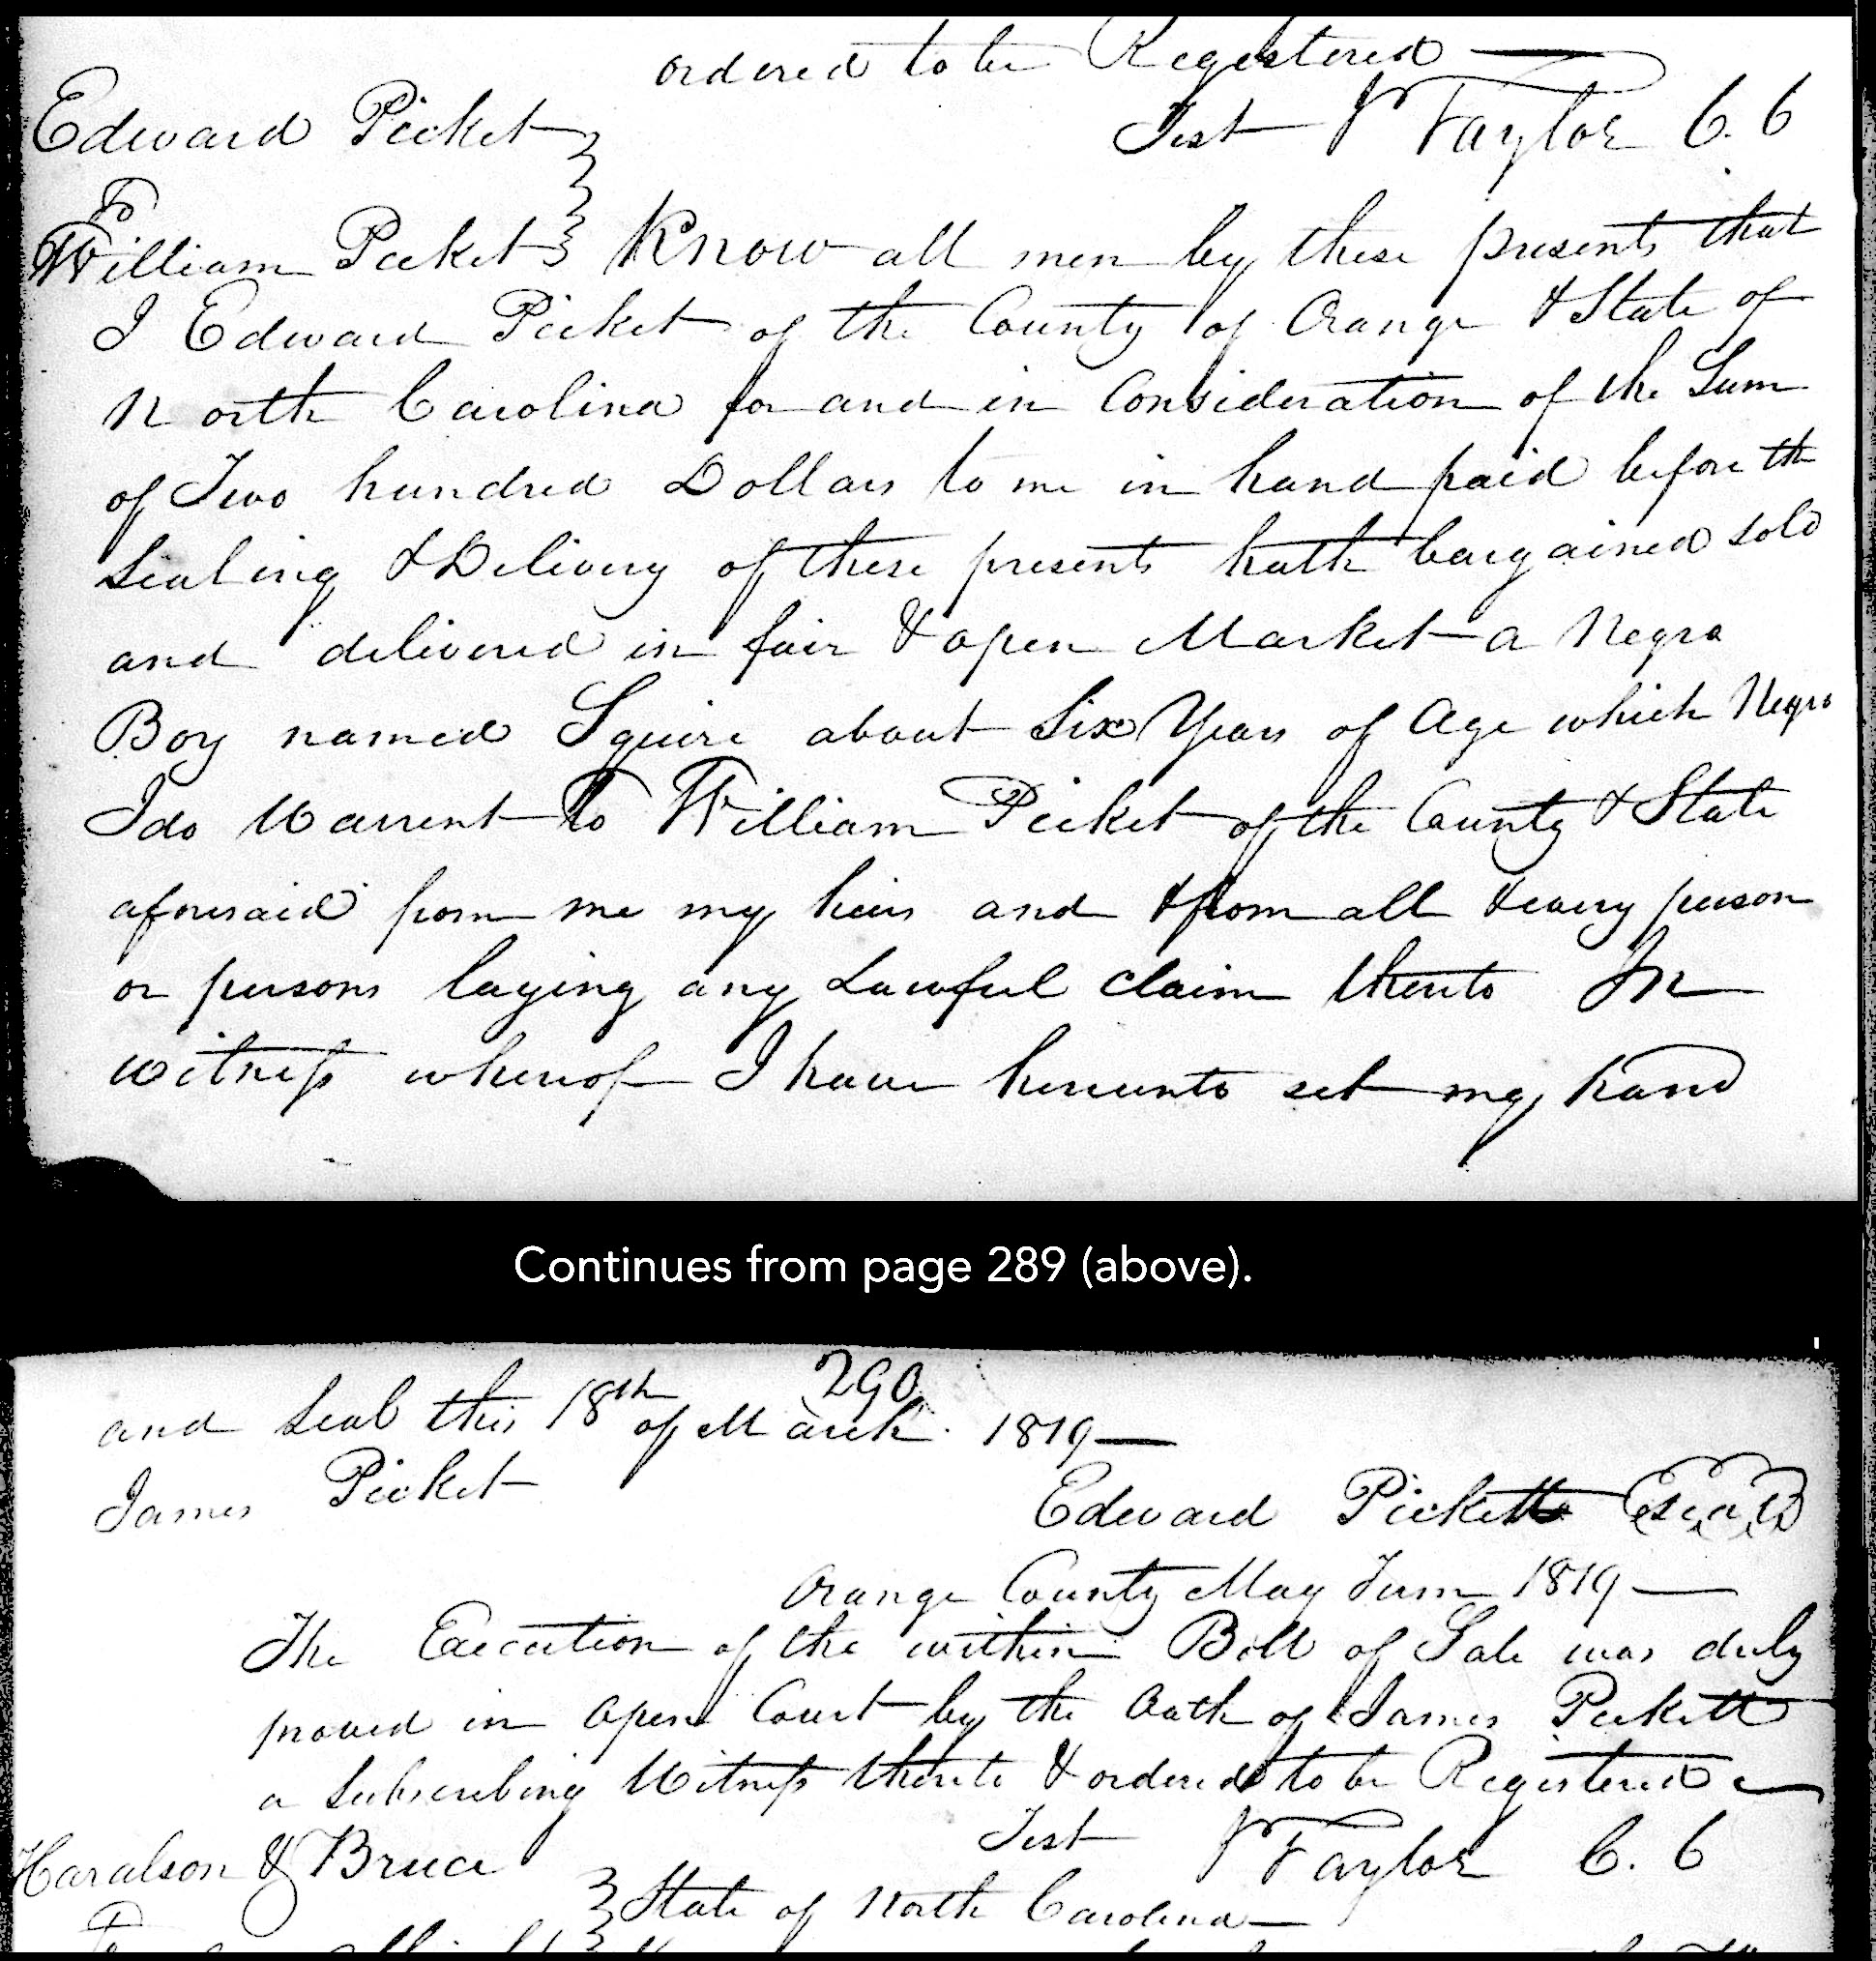 ordered to be Registered
Edward Picket
Test J Taylor C. C
To
William Picket Know all men by these presents that
I Edward Picket of the County of Orange & State of
North Carolina for and in Consideration of the Sum
of Two hundred Dollars to me in hand paid before the
Sealing & Delivery of these presents hath bargained sold
and delivered in fair & open Market a Negro
Boy named Squire about Six Years of Age which Negro
I do Warrent to William Picket of the County & State
aforesaid from me my heirs and & from all & every person
or persons laying any Lawful claim thereto In
witness whereof I have hereunto set my hand
Continues from page 289 (above).
290
and Seal this 18th of March 1819
James Picket
Edward Pickett Seal
Orange County May Term 1819
The Execution of the within Bill of Sale was duly
proved in Open Court by the Oath of James Pickett
a Subscribing Witness thereto & ordered to be Registered
Test J Taylor C. C
Haralson & Bruce
State of North Carolina